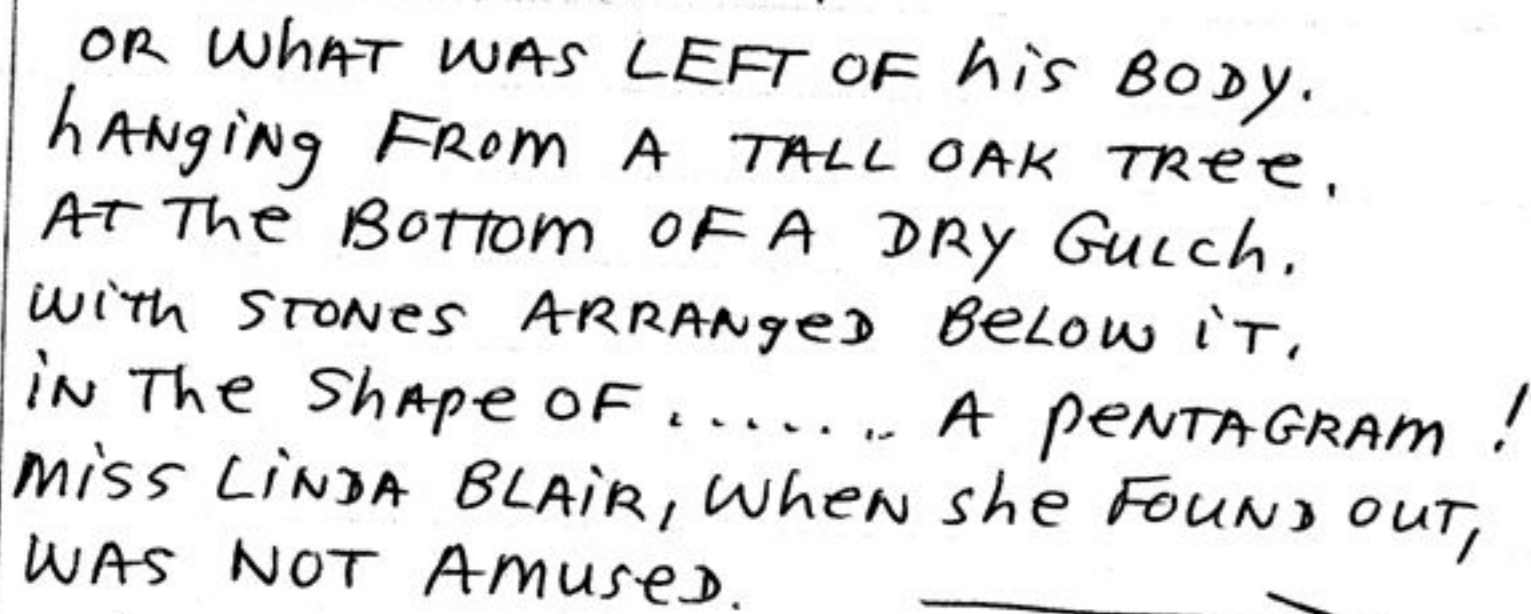 OR WhAT WAS LEFT OF his BODy.
hANgiNg FROm A TALL OAK TRee.
AT The BOTTOm OF A DRY GuLch.
with STONes ARRANgeD BeLOW iT.
iN The ShApe OF ........ A peNTAGRAm !
miss LiNDA BLAiR, WheN she FOuND OuT,
WAS NOT AmuseD.